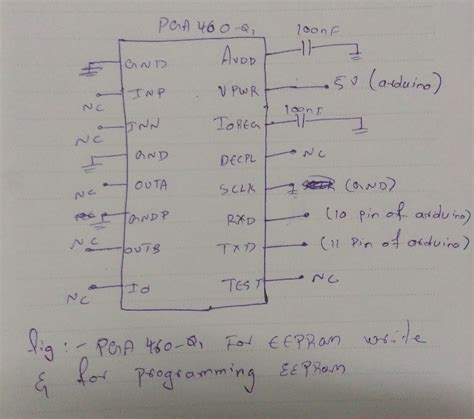 PGA 460-Q1
100nF
GND AVDD
INP VPWR 5V (arduino)
NC
100nF
INN IOREG
NC
GND DECPL NC
OUTA SCLK (GND)
NC
GNDP RXD (10 pin of arduino)
NC
OUTB TXD (11 pin of arduino)
NC IO TEST NC
fig :- PGA 460-Q1 For EEPROM write
& for programming EEPROM